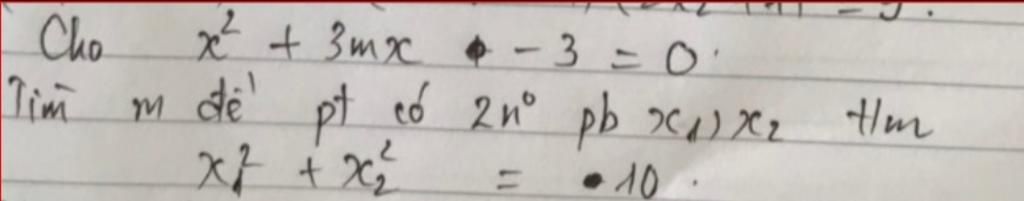 Cho x² + 3mx - 3 = 0
Tìm m để pt có 2n° pb x₁, x₂ t/m
x₁² + x₂² = 10.